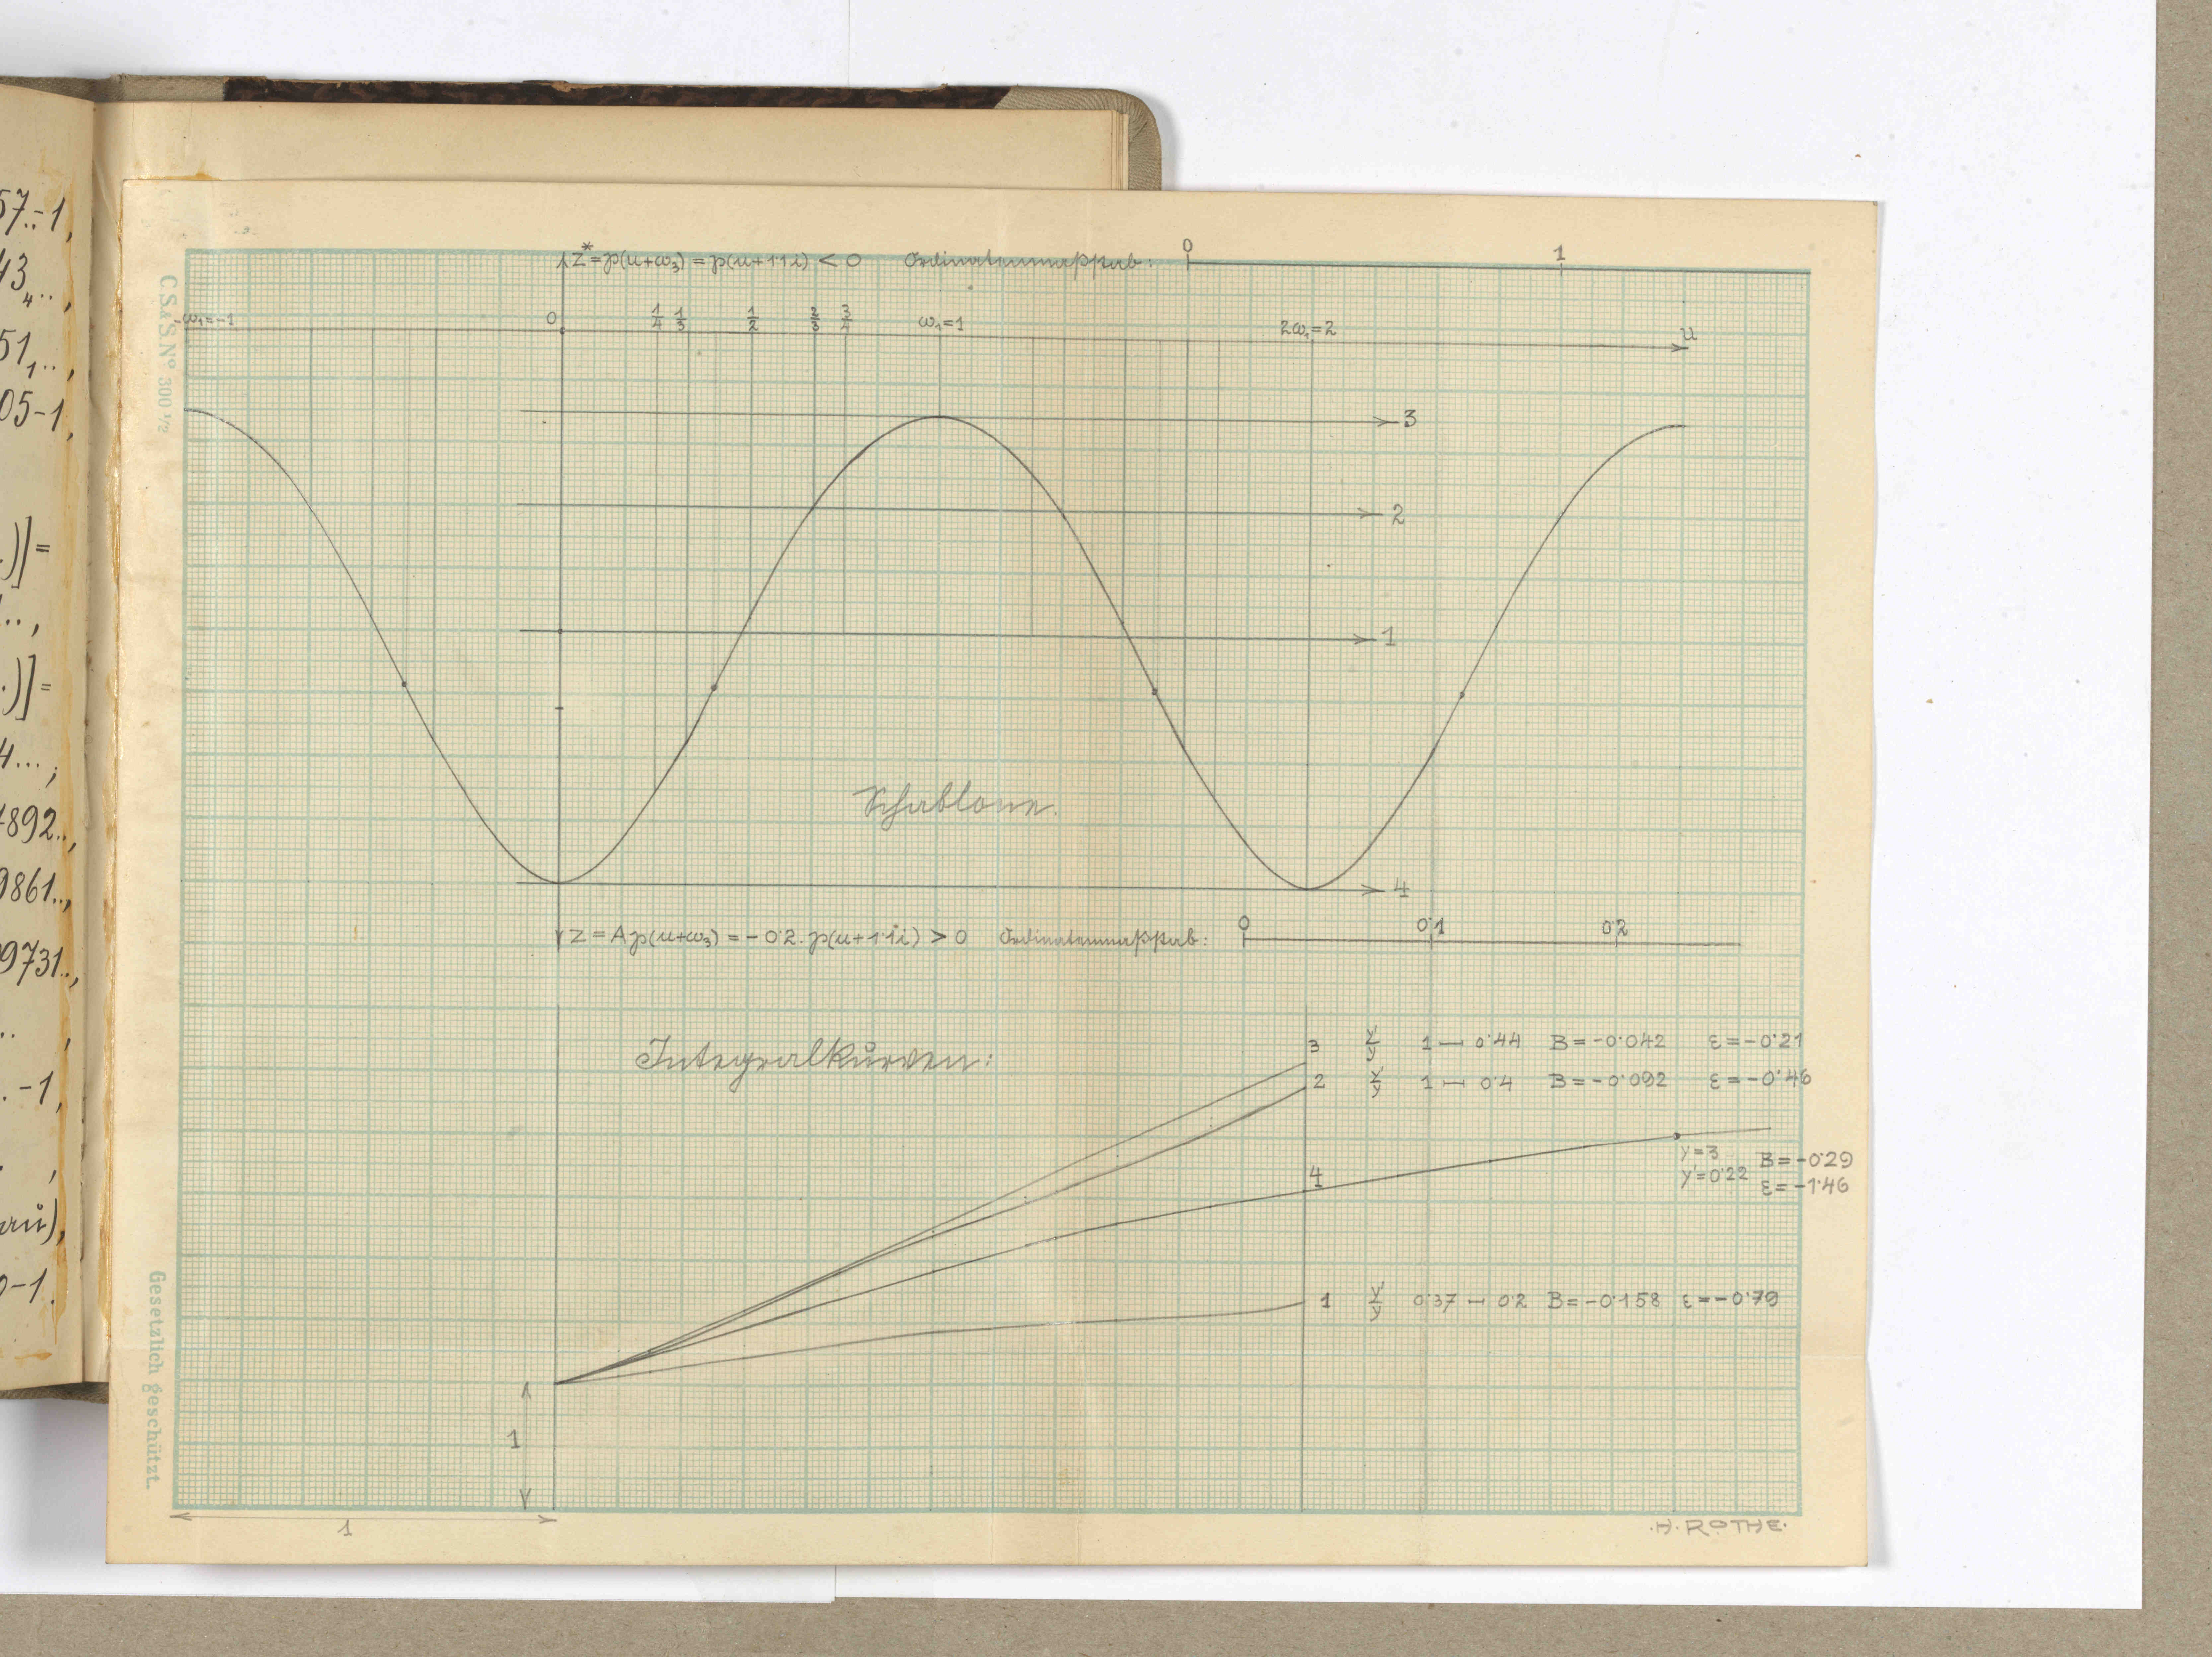 57..-1,
43₄..,
51₁..,
05-1,
.)]=
..,
.)]=
4...;
4892..,
9861..,
9731..,
..,
.-1,
. ,
au),
0-1.
C.S.&S. Nº 300 1/2
Gesetzlich geschützt.
z*=℘(u+ω₃)=℘(u+1·1i)<0 Ordinatenmaßstab: 0 1
-ω₁=-1 0 1/4 1/3 1/2 2/3 3/4 ω₁=1 2ω₁=2 u
3
2
1
Schablone.
4
z=A℘(u+ω₃)=-0·2.℘(u+1·1i)>0 Ordinatenmaßstab: 0 0·1 0·2
Integralkurven:
3 y'/y 1 — 0·44 B=-0·042 ε=-0·21
2 y'/y 1 — 0·4 B=-0·092 ε=-0·46
4 y=3 B=-0·29
y'=0·22 ε=-1·46
1 y'/y 0·37 — 0·2 B=-0·158 ε=-0·79
1
1
·H·ROTHE·